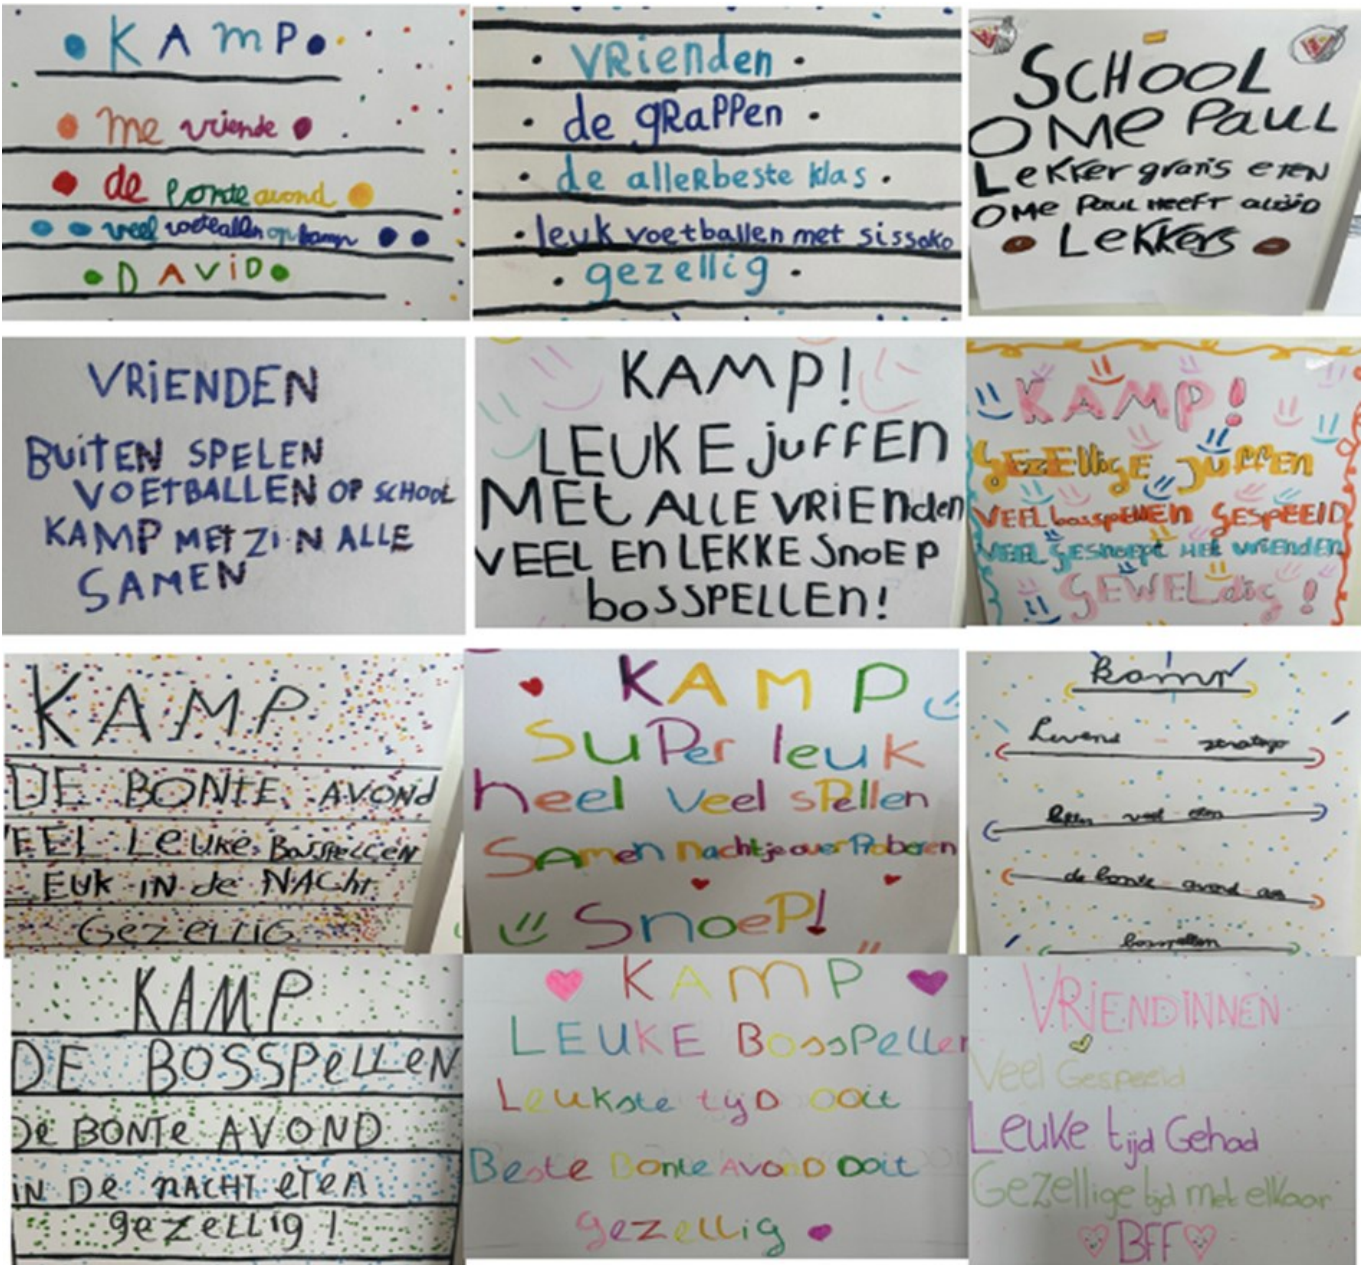 KAMP
me vriende
de bonte avond
veel voetballen op kamp
DAViD
VRienden
de gRaPPen
de alleRbeste klas
leuk voetballen met sissoko
gezellig
SCHOOL
OME PauL
LeKKer gratis eTEN
OMe Paul HeeFT altijD
LeKKeRs
VRiENDEN
BUiTEN SPELEN
VOETBALLEN OP SCHOOL
KAMP MET ZiN ALLE
SAMEN
KAMP!
LEUKE juFFEn
MEt ALLE VRiEnden
VEEL En LEKKE SnoEP
boSSPELLEn!
KAMP!
GEZEllige juffen
VEEL bosspellEn GESPEElD
VEEL GESnoept MET vrienden
GEWELdig!
KAMP
DE BONTE AVONd
VEEL LEUKE BOSSPELLEN
LEUK IN de NACHt
GeZELLIG
KAMP
SuPer leuk
heel veel sPellen
SAmen nachtje over Proberen
SnoeP!
kamp
Levend - stratego
de bonte - avond
bosspellen
KAMP
DE BOSSPELLEN
De BONTe AVOND
iN De nACHT eTen
gezellig!
KAMP
LEUKE BossPellen
Leukste tijD OOit
Beste Bonte AVOnD Ooit
gezellig
VRIENDINNEN
Veel Gespeeld
Leuke tijd Gehad
Gezellige tijd met elkaar
BFF